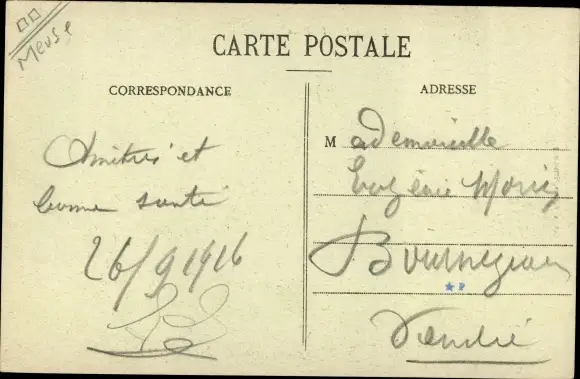 Meuse
CARTE POSTALE
CORRESPONDANCE
ADRESSE
Amitiés et
bonne santé
26/9/1916
Mademoiselle
Eugénie Morin
Bournezeau
Vendée